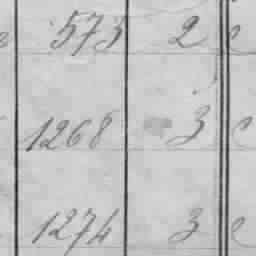 573 2
1268 3
1274 3